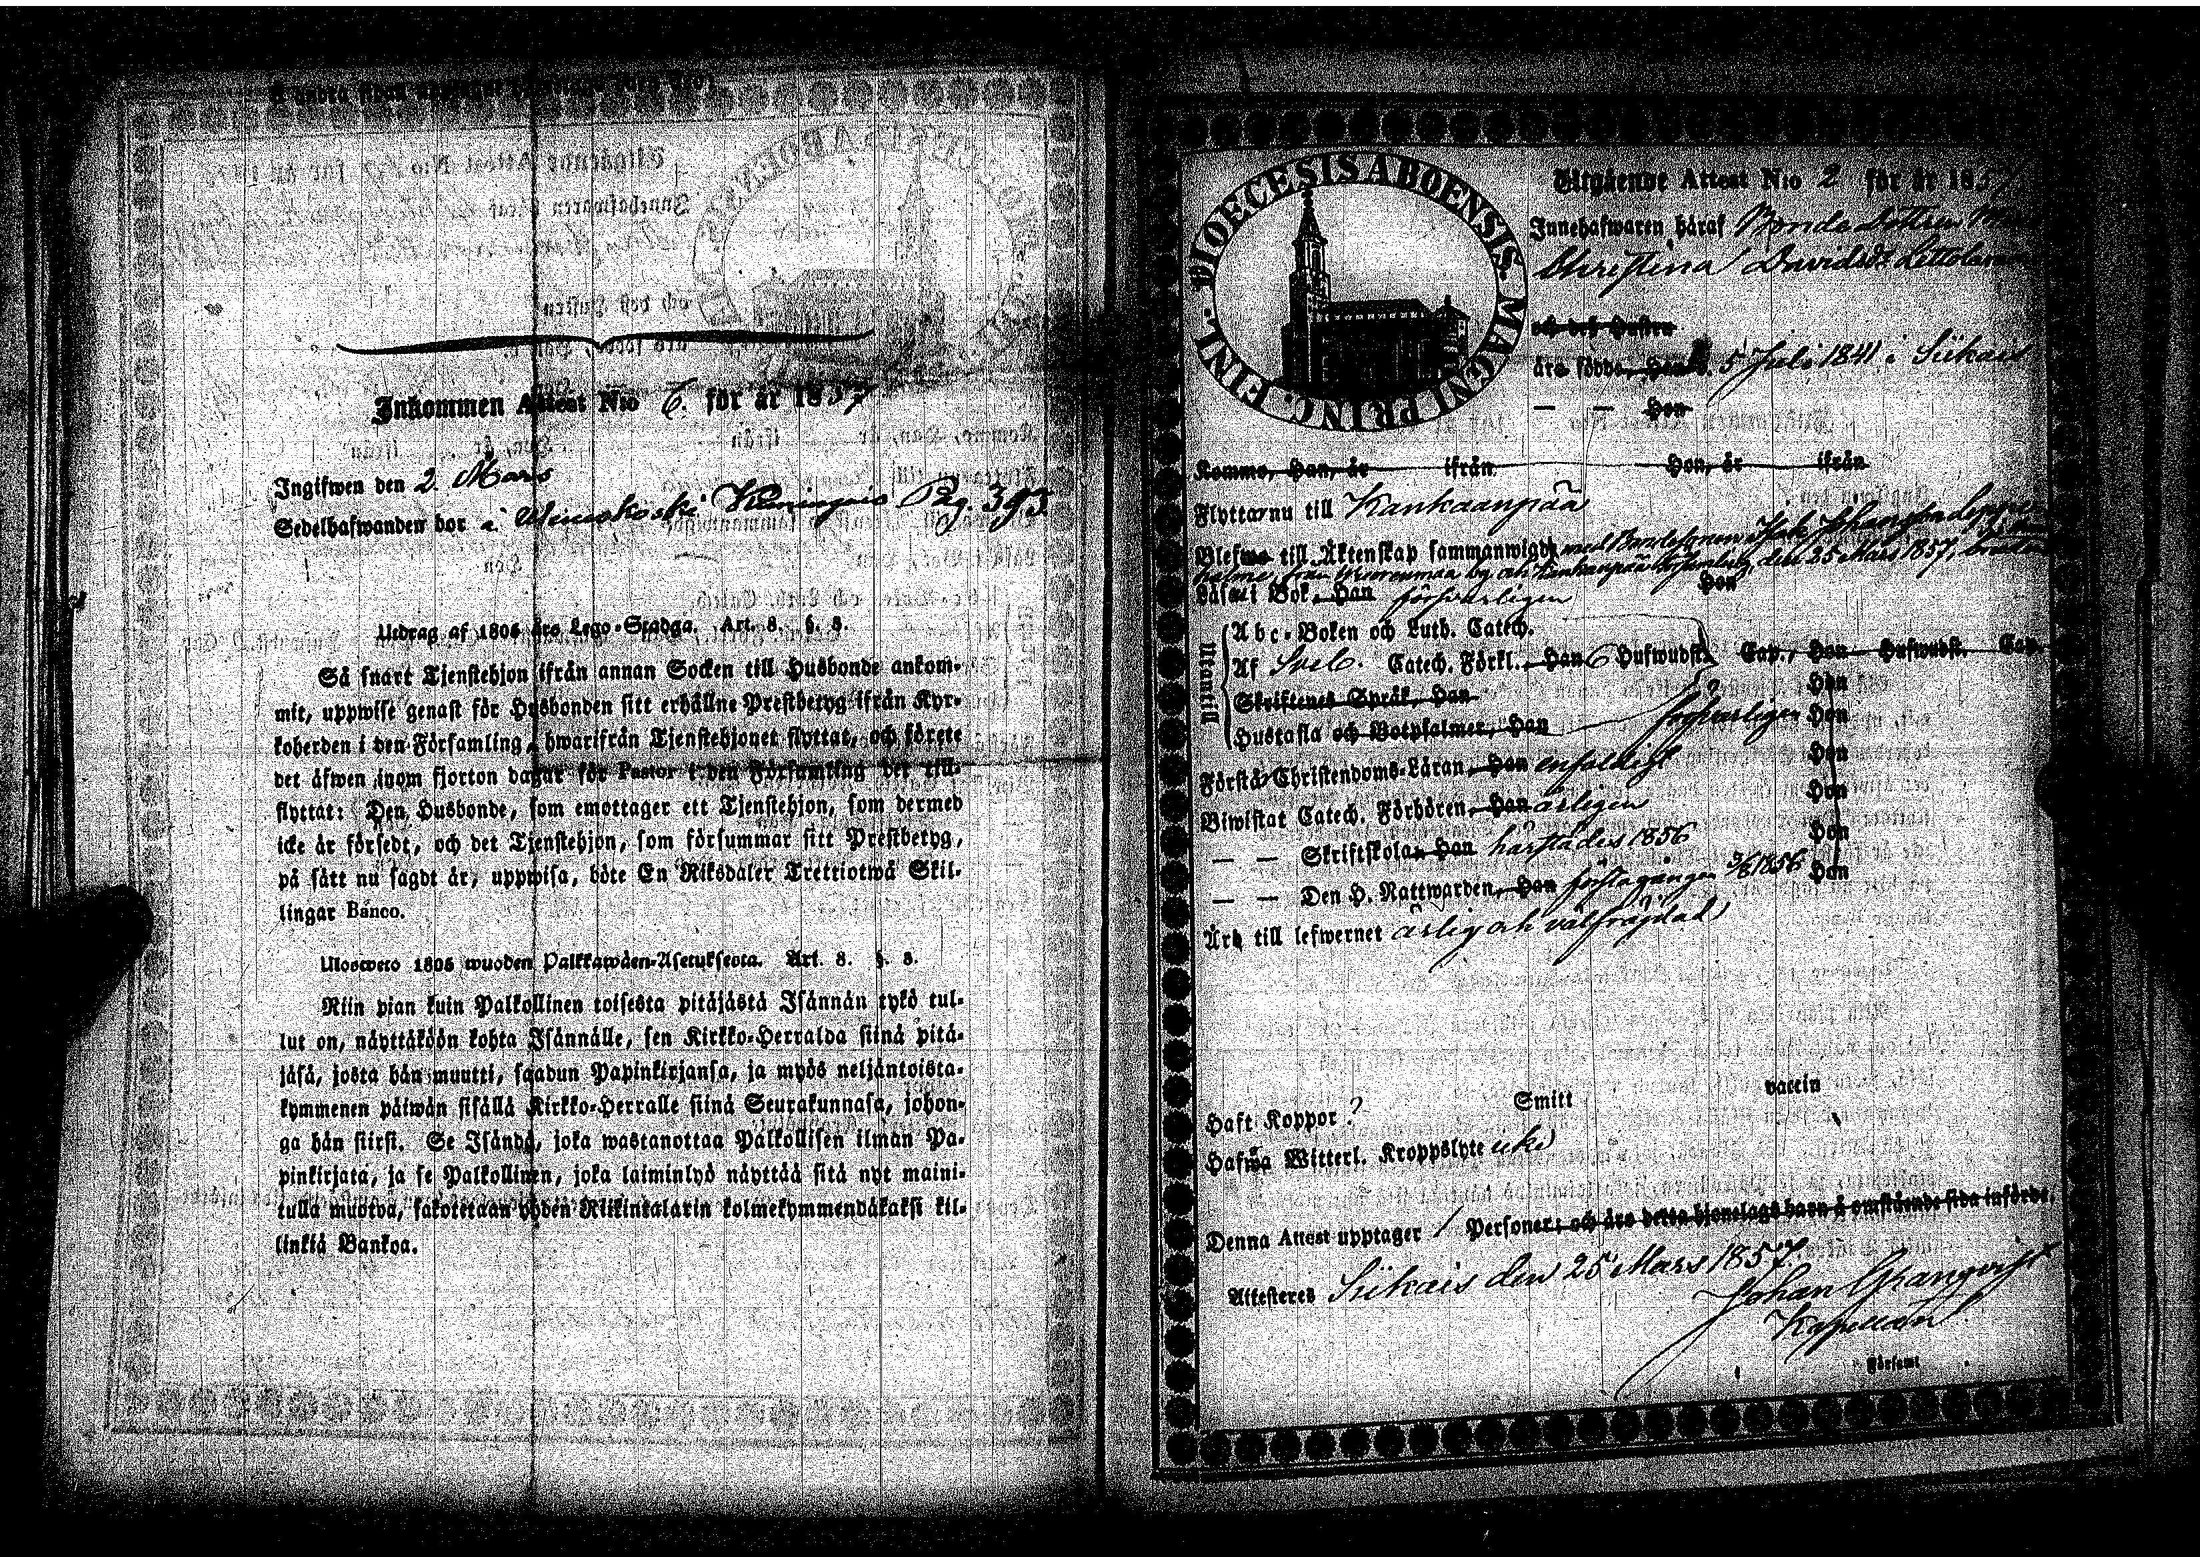 Inkommen Attest N:o 6. för år 1857
Ingifwen den 2 Mars
Sedelhafwanden bor i Pag. 393
Utdrag af 1805 års Lego-Stadga. Art. 8. §. 8.
Så snart Tjenstehjon ifrån annan Socken till Husbonde ankom-
mit, uppwise genast för Husbonden sitt erhållne Prestbetyg ifrån Kyr-
koherden i den Församling, hwarifrån Tjenstehjonet flyttat, och förete
det äfwen inom fjorton dagar för Pastor i den Församling det till-
flyttat: Den Husbonde, som emottager ett Tjenstehjon, som dermed
icke är försedt, och det Tjenstehjon, som försummar sitt Prestbetyg,
på sätt nu sagdt är, uppwisa, böte En Riksdaler Trettiotwå Skil-
lingar Banco.
Ulosweto 1805 wuoden Palkkawäen-Asetuksesta. Art. 8. §. 8.
Niin pian kuin Palkollinen toisesta pitäjästä Isännän tykö tul-
lut on, näyttäköön kohta Isännälle, sen Kirkko-Herralda siinä pitä-
jäsä, josta hän muutti, saadun Papinkirjansa, ja myös neljäntoista-
kymmenen päiwän sisällä Kirkko-Herralle siinä Seurakunnasa, johon-
ga hän siirsi. Se Isändä, joka wastanottaa Palkollisen ilman Pa-
pinkirjata, ja se Palkollinen, joka laiminlyö näyttää sitä nyt maini-
tulla muotoa, sakotetaan yhden Riikintalarin kolmekymmendäkaksi kil-
linkiä Bankoa.
DIOECESIS ABOENSIS MAGNI PRINC. FINL.
Utgående Attest N:o 2 för år 185
Innehafwaren häraf Bonde Dottren
Christina Davidsdr
och dess Hustru
äro födde, Han d. 5 Juli 1841 i Siikais
— — Hon
Komne, Han, år ifrån Hon, år ifrån
Flyttar nu till Kankaanpää
Blefwe till Äktenskap sammanwigde med Bondesonen Isak Johansson
från by och Kankaanpää församling, den 25 Mars 1857,
Läsa i Bok, Han försvarligen Hon
Utantill
Abc-Boken och Luth. Catech.
Af Sveb. Catech. Förkl. Han 6 Hufwudst. Cap., Hon Hufwudst. Cap.
Skriftenes Språk, Han Hon
Hustafla och Botpsalmer, Han försvarligen Hon
Förstå Christendoms-Läran, Han enfaldigt Hon
Biwistat Catech. Förhören, Han årligen Hon
— — Skriftskola, Han härstädes 1856 Hon
— — Den H. Nattwarden, Han förstagången 1856 Hon
Är till lefwernet ärlig och välfräjdad
Haft Koppor? Smitt vaccin
Hafwa Witterl. Kroppslyte icke
Denna Attest upptager 1 Personer: och äro detta hjonelags barn å omstående sida införde.
Attesteres Siikais den 25 Mars 1857.
Johan Granqvist
Kapellan
Församl